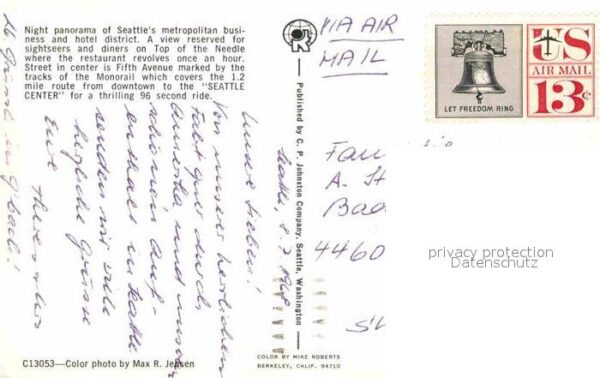 Night panorama of Seattle's metropolitan busi-
ness and hotel district. A view reserved for
sightseers and diners on Top of the Needle
where the restaurant revolves once an hour.
Street in center is Fifth Avenue marked by the
tracks of the Monorail which covers the 1.2
mile route from downtown to the "SEATTLE
CENTER" for a thrilling 96 second ride.
VIA AIR
MAIL
LET FREEDOM RING
US
AIR MAIL
13c
Published by C. P. Johnston Company, Seattle, Washington
Seattle, 8.7.1968
Unsere Lieben!
Von unserer herrlichen
Fahrt quer durch
Amerika, und unserem
schönen Auf-
enthalt in Seattle
senden wir viele
herzliche Grüsse
Eure
Fam
A. St
Bad
4460
privacy protection
Datenschutz
C13053—Color photo by Max R. Jensen
COLOR BY MIKE ROBERTS
BERKELEY, CALIF. 94710